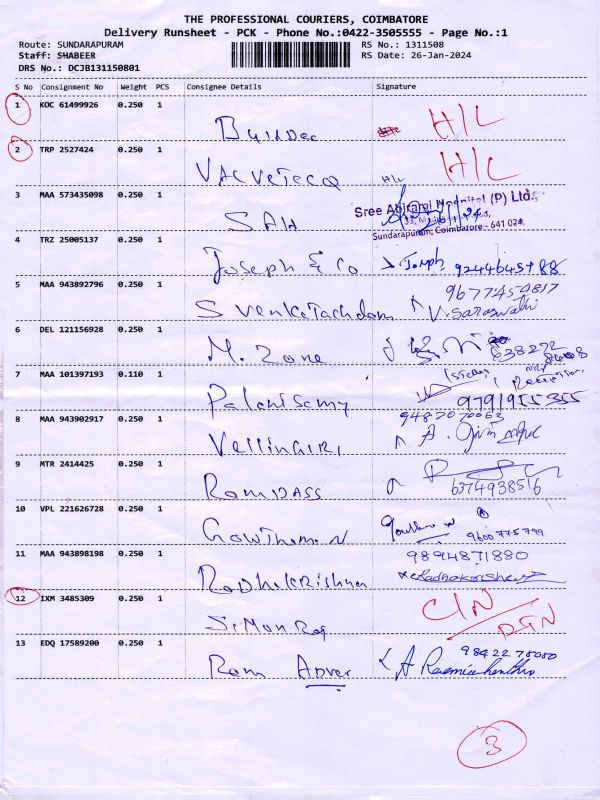 THE PROFESSIONAL COURIERS, COIMBATORE
Delivery Runsheet - PCK - Phone No.:0422-3505555 - Page No.:1
Route: SUNDARAPURAM RS No.: 1311508
Staff: SHABEER RS Date: 26-Jan-2024
DRS No.: DCJB131150801
S No Consignment No Weight PCS Consignee Details Signature
1 KOC 61499926 0.250 1
H/L
2 TRP 2527424 0.250 1
H/L H/L
3 MAA 573435098 0.250 1
Sree Abirami Hospital (P) Ltd.
SAH
Sundarapuram, Coimbatore - 641 024.
4 TRZ 25005137 0.250 1
Joseph & Co Joseph 9244645788
5 MAA 943892796 0.250 1
9677454817
V. Saraswathi
6 DEL 121156928 0.250 1
M. Zone
7 MAA 101397193 0.110 1
Palanisamy 9791955355
8 MAA 943902917 0.250 1
9487070063
Vellingiri A.
9 MTR 2414425 0.250 1
Ramdass 6374938516
10 VPL 221626728 0.250 1
Gowthaman 9600775799
11 MAA 943898198 0.250 1
9894871880
Radhakrishnan
12 IXM 3485309 0.250 1
C/N
Simon Raj
13 EDQ 17589200 0.250 1
Ram
3